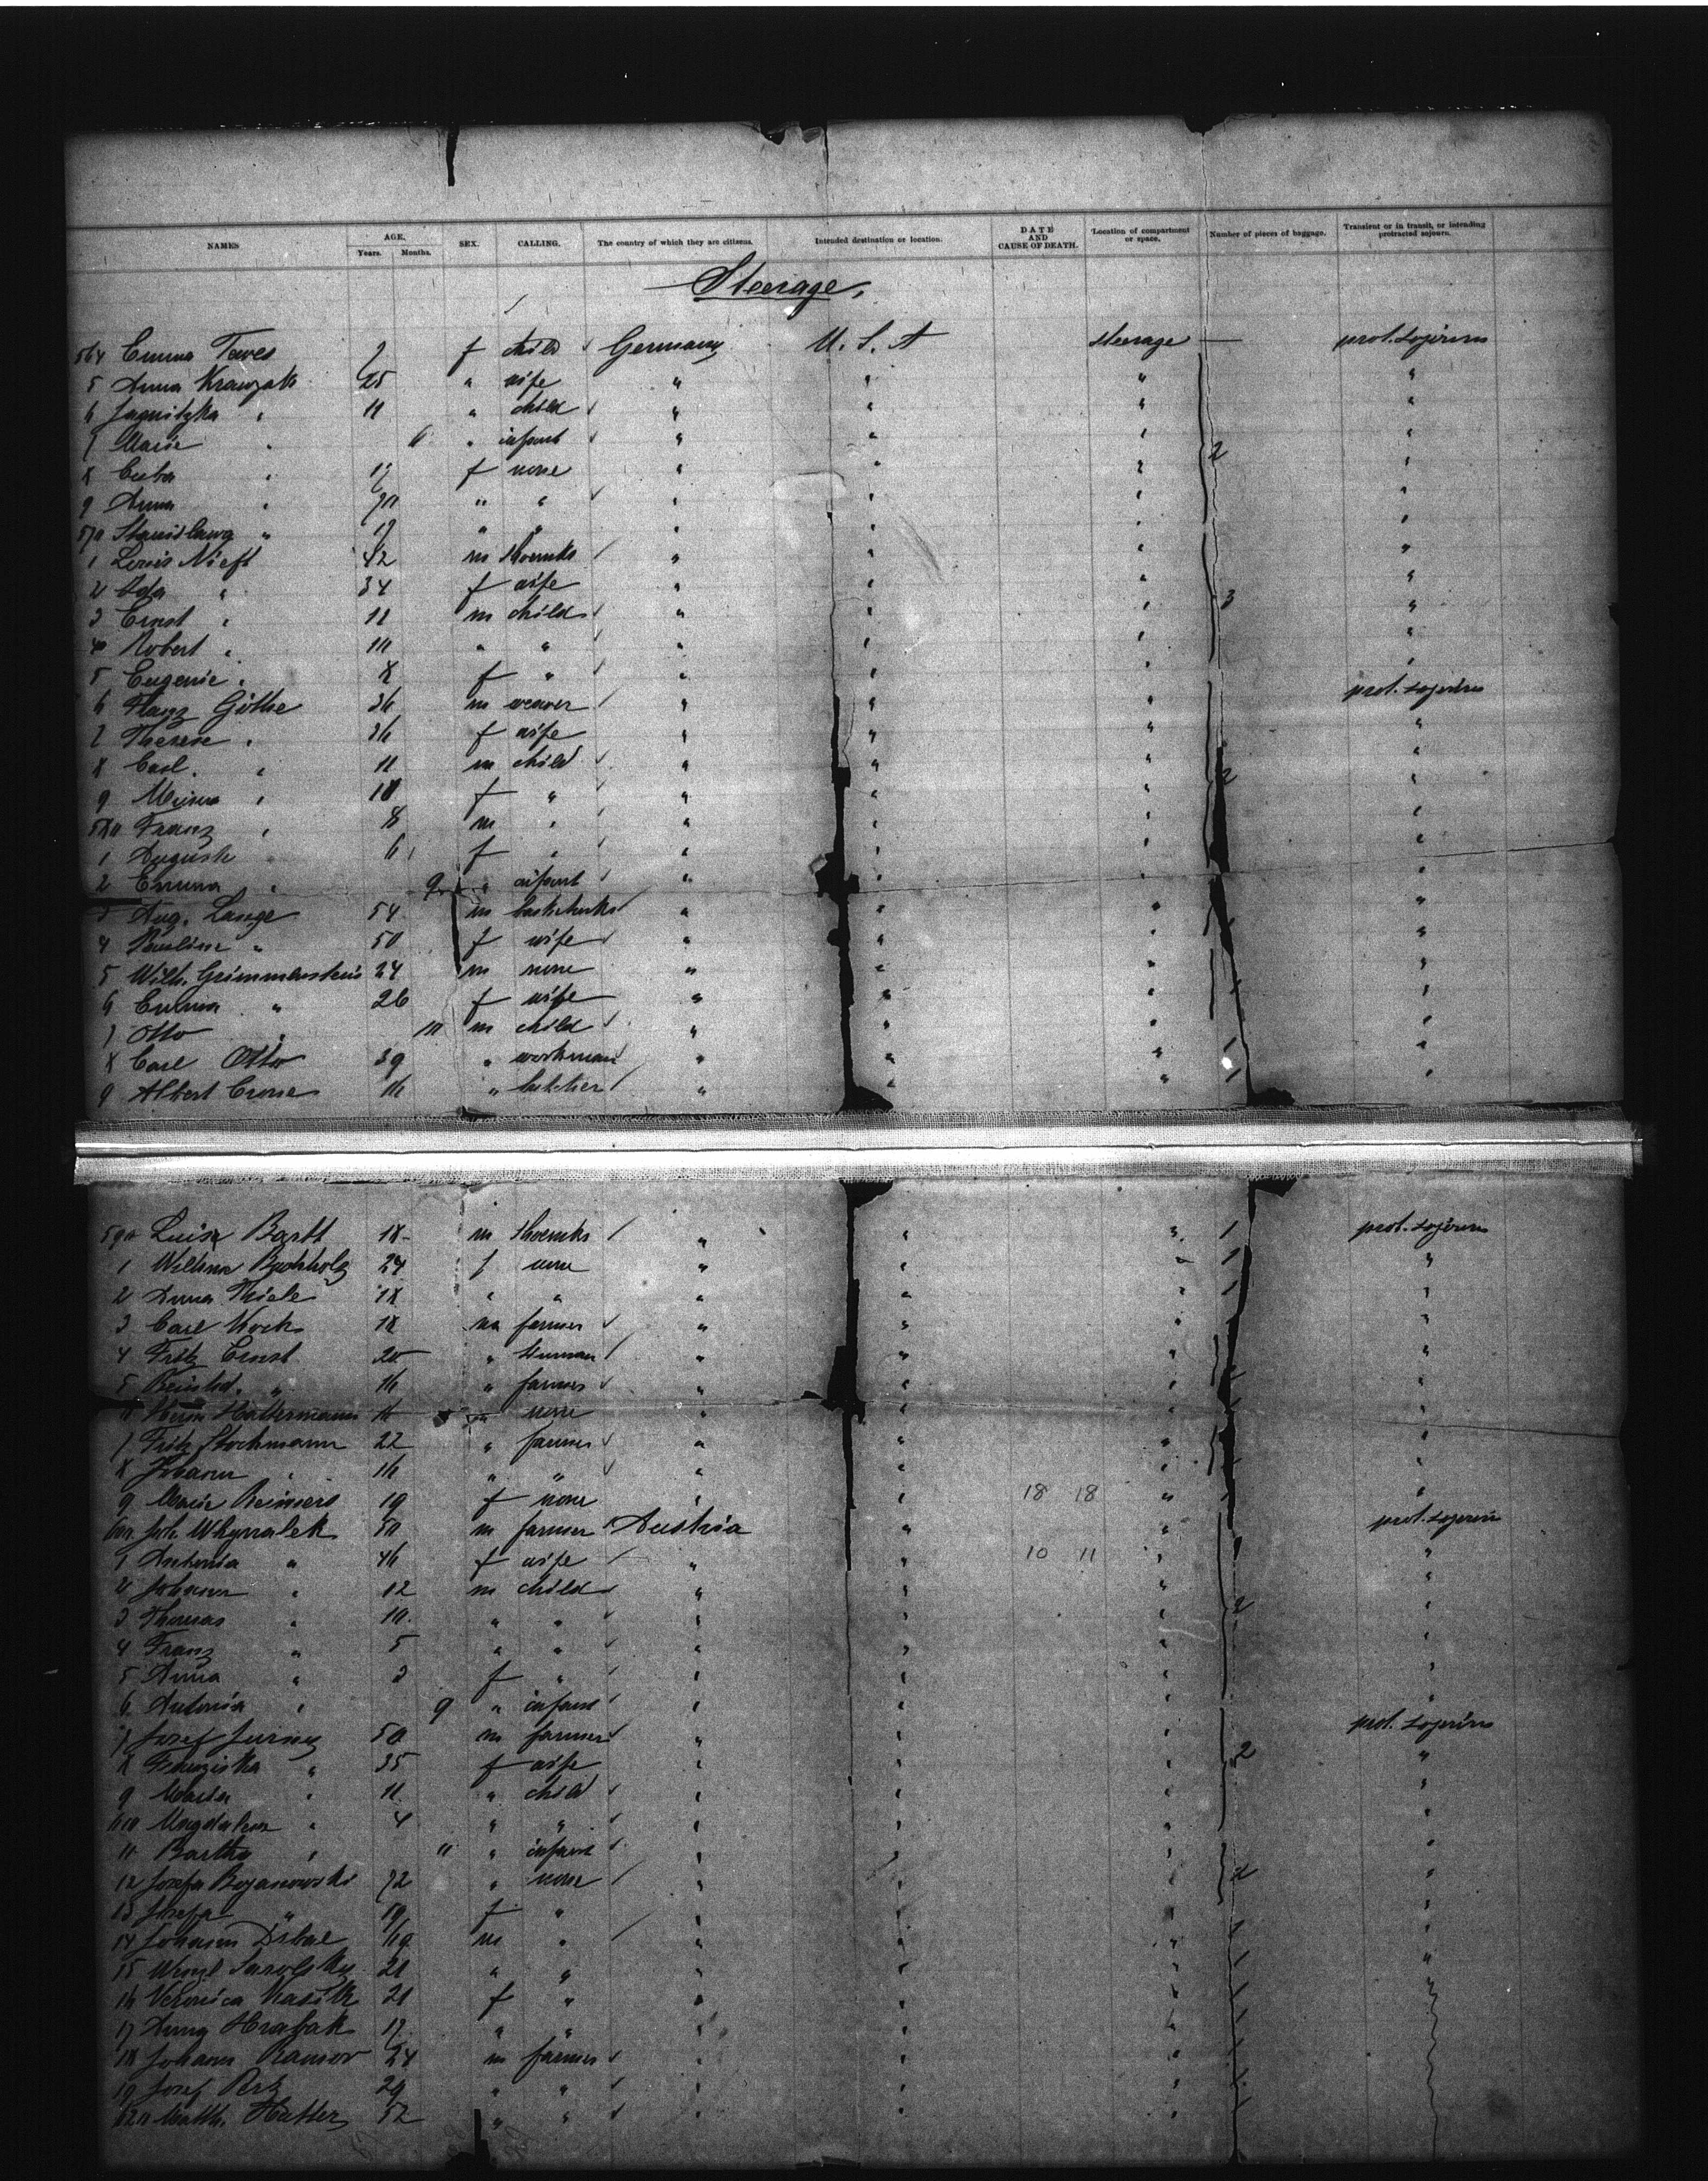 NAMES AGE. Years. Months. SEX. CALLING. The country of which they are citizens. Intended destination or location. DATE AND CAUSE OF DEATH. Location of compartment or space. Number of pieces of baggage. Transient or in transit, or intending protracted sojourn.
Steerage.
564 Emma Tewes f child Germany U. S. A steerage — prot. sojourn
5 Anna Krawzak 25 " wife " " " "
6 " 11 " child " " " "
7 Marie " 6 " infant " " " "
8 " 17 f none " " " 2 "
9 Anna " " " " " " "
570 Stanislawa " 17 " " " " " "
1 Louis Nieft 42 m shoemkr " " " "
2 Ida " 34 f wife " " " "
3 Ernst " 11 m child " " " 3 "
4 Robert " 10 " " " " " "
5 Eugenie " 8 f " " " " "
6 Franz Göthe 36 m weaver " " " prot. sojourn
7 Therese " 36 f wife " " " "
8 Carl " 11 m child " " " "
9 " 10 f " " " " 2 "
580 Franz " 8 m " " " " "
1 Auguste " 6 f " " " " "
2 Emma " 9 " infant " " " "
3 Aug. Lange 54 m " " " "
4 Pauline " 50 f wife " " " "
5 Wilh. Grimmenstein 24 m none " " " "
6 Emma " 26 f wife " " " "
7 Otto " 10 m child " " " "
8 Carl Otto 39 " workman " " " 1 "
9 Albert Crone 16 " butcher " " " 1 "
590 Luise Bartt 18 m shoemkr " " " 1 prot. sojourn
1 Wilhna Buchholz 24 f none " " " 1 "
2 Anna Thiele 18 " " " " " 1 "
3 Carl Koch 18 m farmer " " " "
4 Fritz Ernst 20 " " " " "
5 Reinhd. " 16 " farmer " " " "
6 Herm Haltermann 16 " none " " " "
7 Fritz Stockmann 22 " farmer " " " "
8 Johann " 16 " " " " " "
9 Marie Reimers 19 f none " " 18 18 " "
600 Joh. Whynalek 50 m farmer Austria " " prot. sojourn
1 Antonia " 46 f wife " " 10 11 " "
2 Johann " 12 m child " " " "
3 Thomas " 10 " " " " " 2 "
4 Franz " 5 " " " " " "
5 Anna " 3 f " " " " "
6 Antonia " 9 " infant " " " "
7 Josef 50 m farmer " " " prot. sojourn
8 Franziska " 35 f wife " " " 2 "
9 Maria " 11 " child " " " "
610 Magdalena " 4 " " " " " "
11 Bartha " 11 " infant " " " "
12 Josefa Bojanowski 72 " none " " " 2 "
13 Josefa " 19 f " " " " "
14 Johann 19 m " " " " 1 "
15 Wenzl 21 " " " " " 1 "
16 Veronica Kasik 21 f " " " " 1
17 Anna Hrabak 17 " " " " " 1
18 Johann 24 m farmer " " " 1
19 Josef 29 " " " " " 1
620 Matth. Hutter 52 " " " " " 1